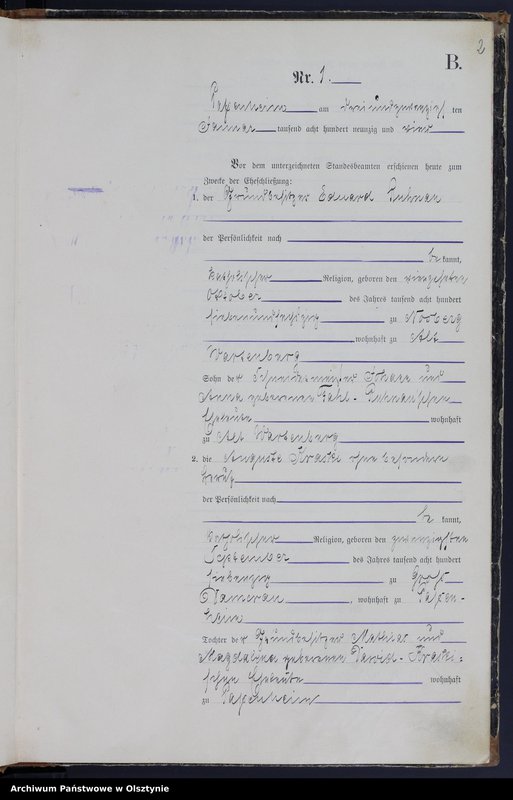 2
B.
Nr. 1.
am dreiundzwanzig ten
Januar tausend acht hundert neunzig und vier
Vor dem unterzeichneten Standesbeamten erschienen heute zum
Zwecke der Eheschließung:
1. der Grundbesitzer Eduard
der Persönlichkeit nach
be kannt,
katholischer Religion, geboren den
Oktober des Jahres tausend acht hundert
siebenundsechzig zu
wohnhaft zu Alt
Wartenburg
Sohn der Schneidermeister Johann und
Anna geborenen
Eheleute wohnhaft
zu Alt Wartenburg
2. die Auguste ohne besonderen
Beruf
der Persönlichkeit nach
be kannt,
katholischer Religion, geboren den zwanzigsten
September des Jahres tausend acht hundert
siebenzig zu Groß
wohnhaft zu
heim
Tochter der Grundbesitzer Mathias und
Magdalena geborenen
Eheleute wohnhaft
zu
Archiwum Państwowe w Olsztynie